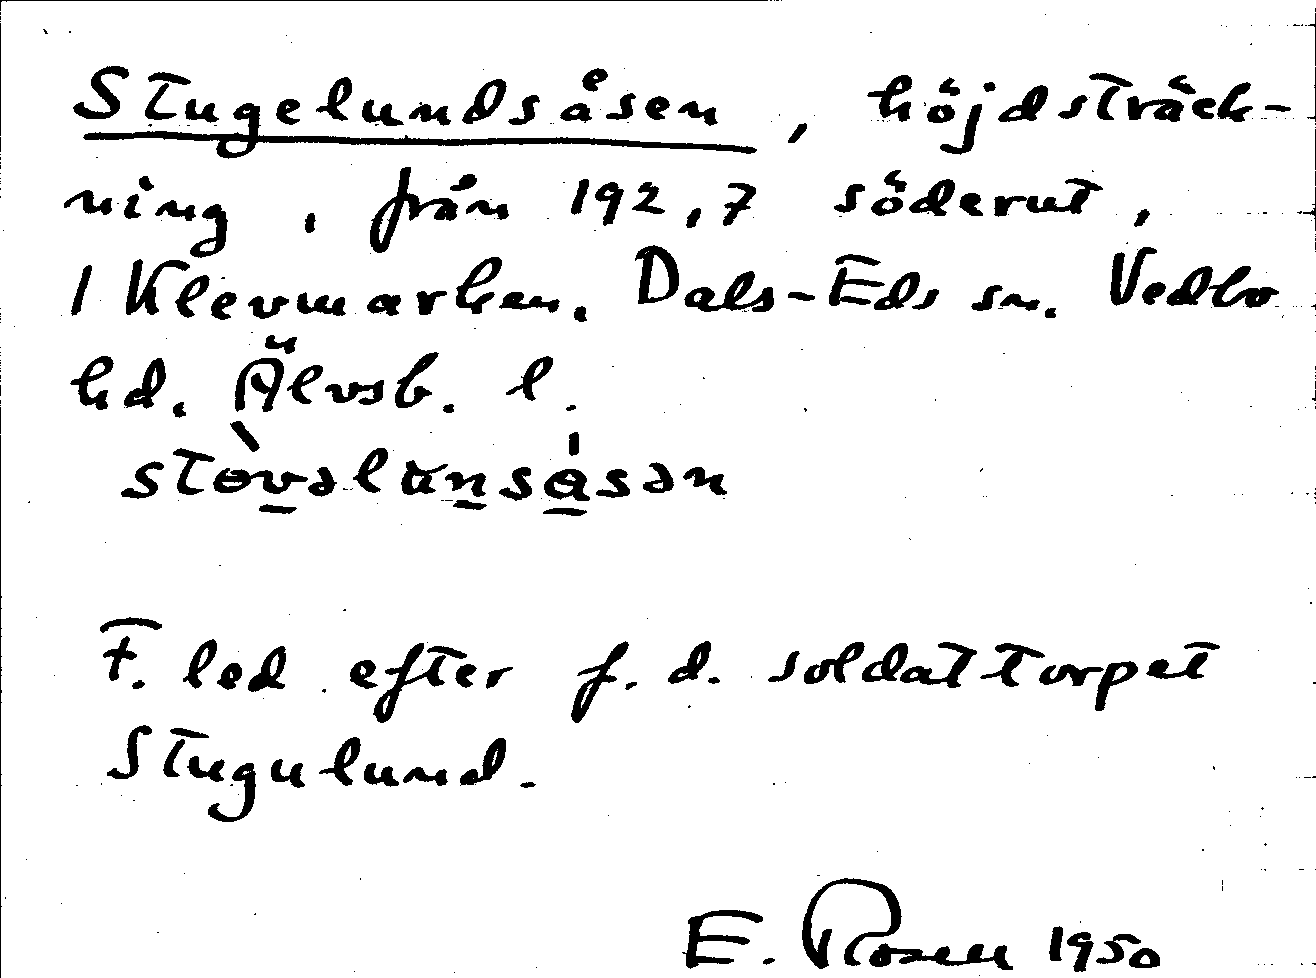 Stugelundsåsen, höjdsträck-
ning, från 192,7 söderut,
i Klevmarken. Dals-Eds sn. Vedbo
hd. Älvsb. l.
stòvəlunsásən
F. led efter f. d. soldattorpet
Stugulund.
E. Rosell 1950